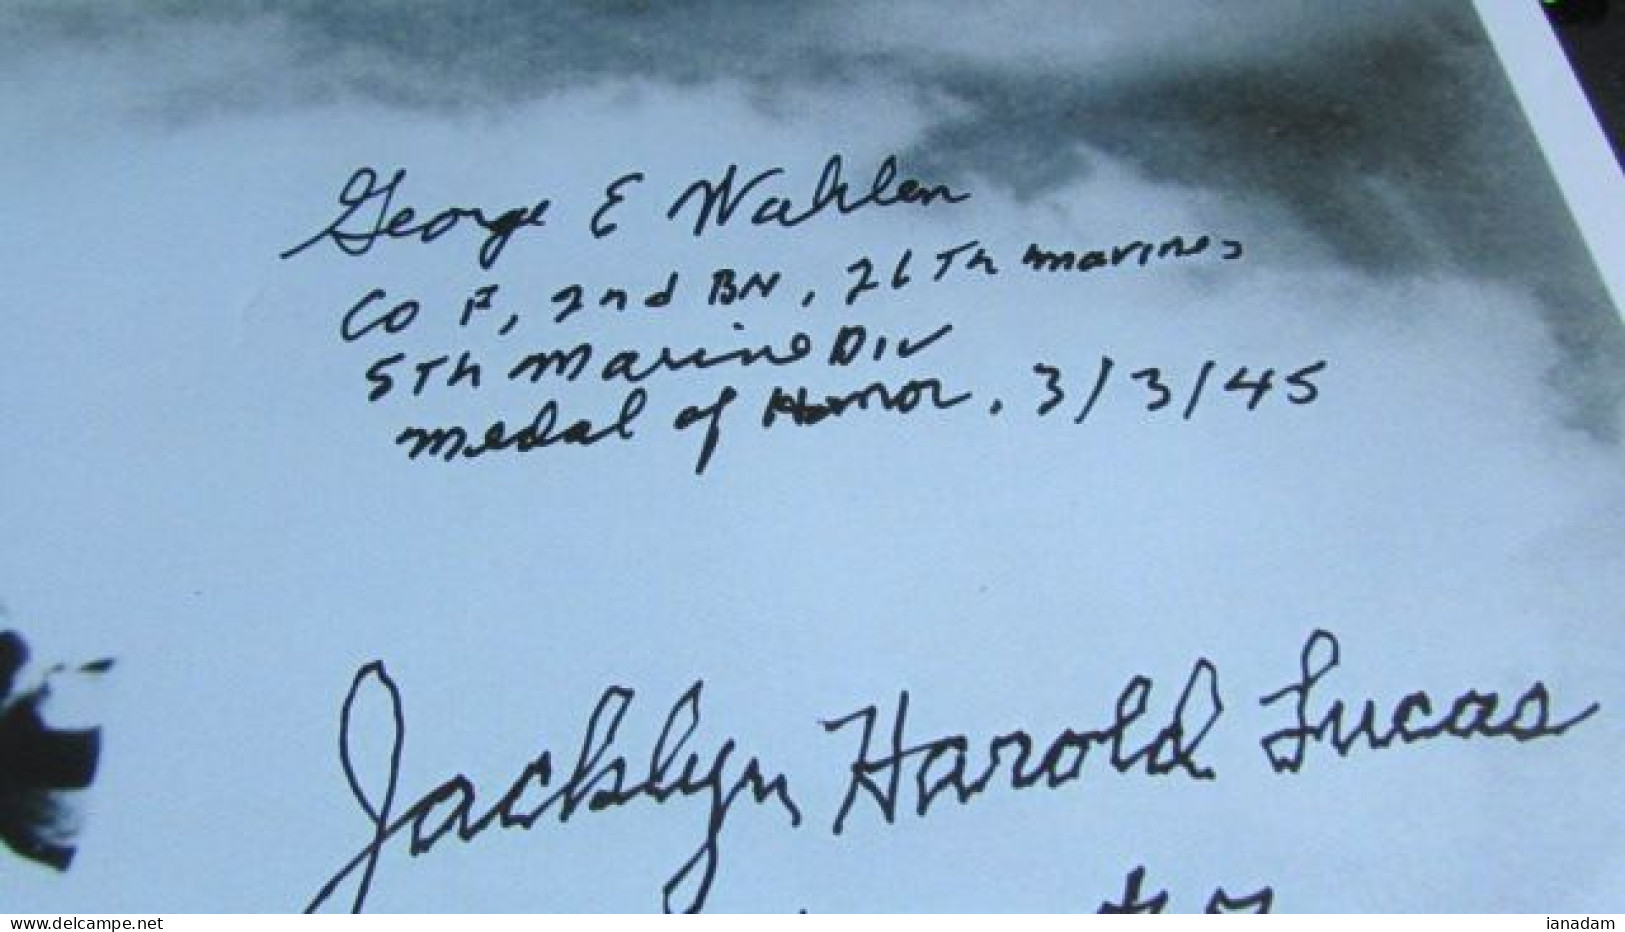 George E Wahlen
Co F, 2nd BN, 26Th marines
5Th Marine Div
medal of Honor, 3/3/45
Jacklyn Harold Lucas
www.delcampe.net
ianadam